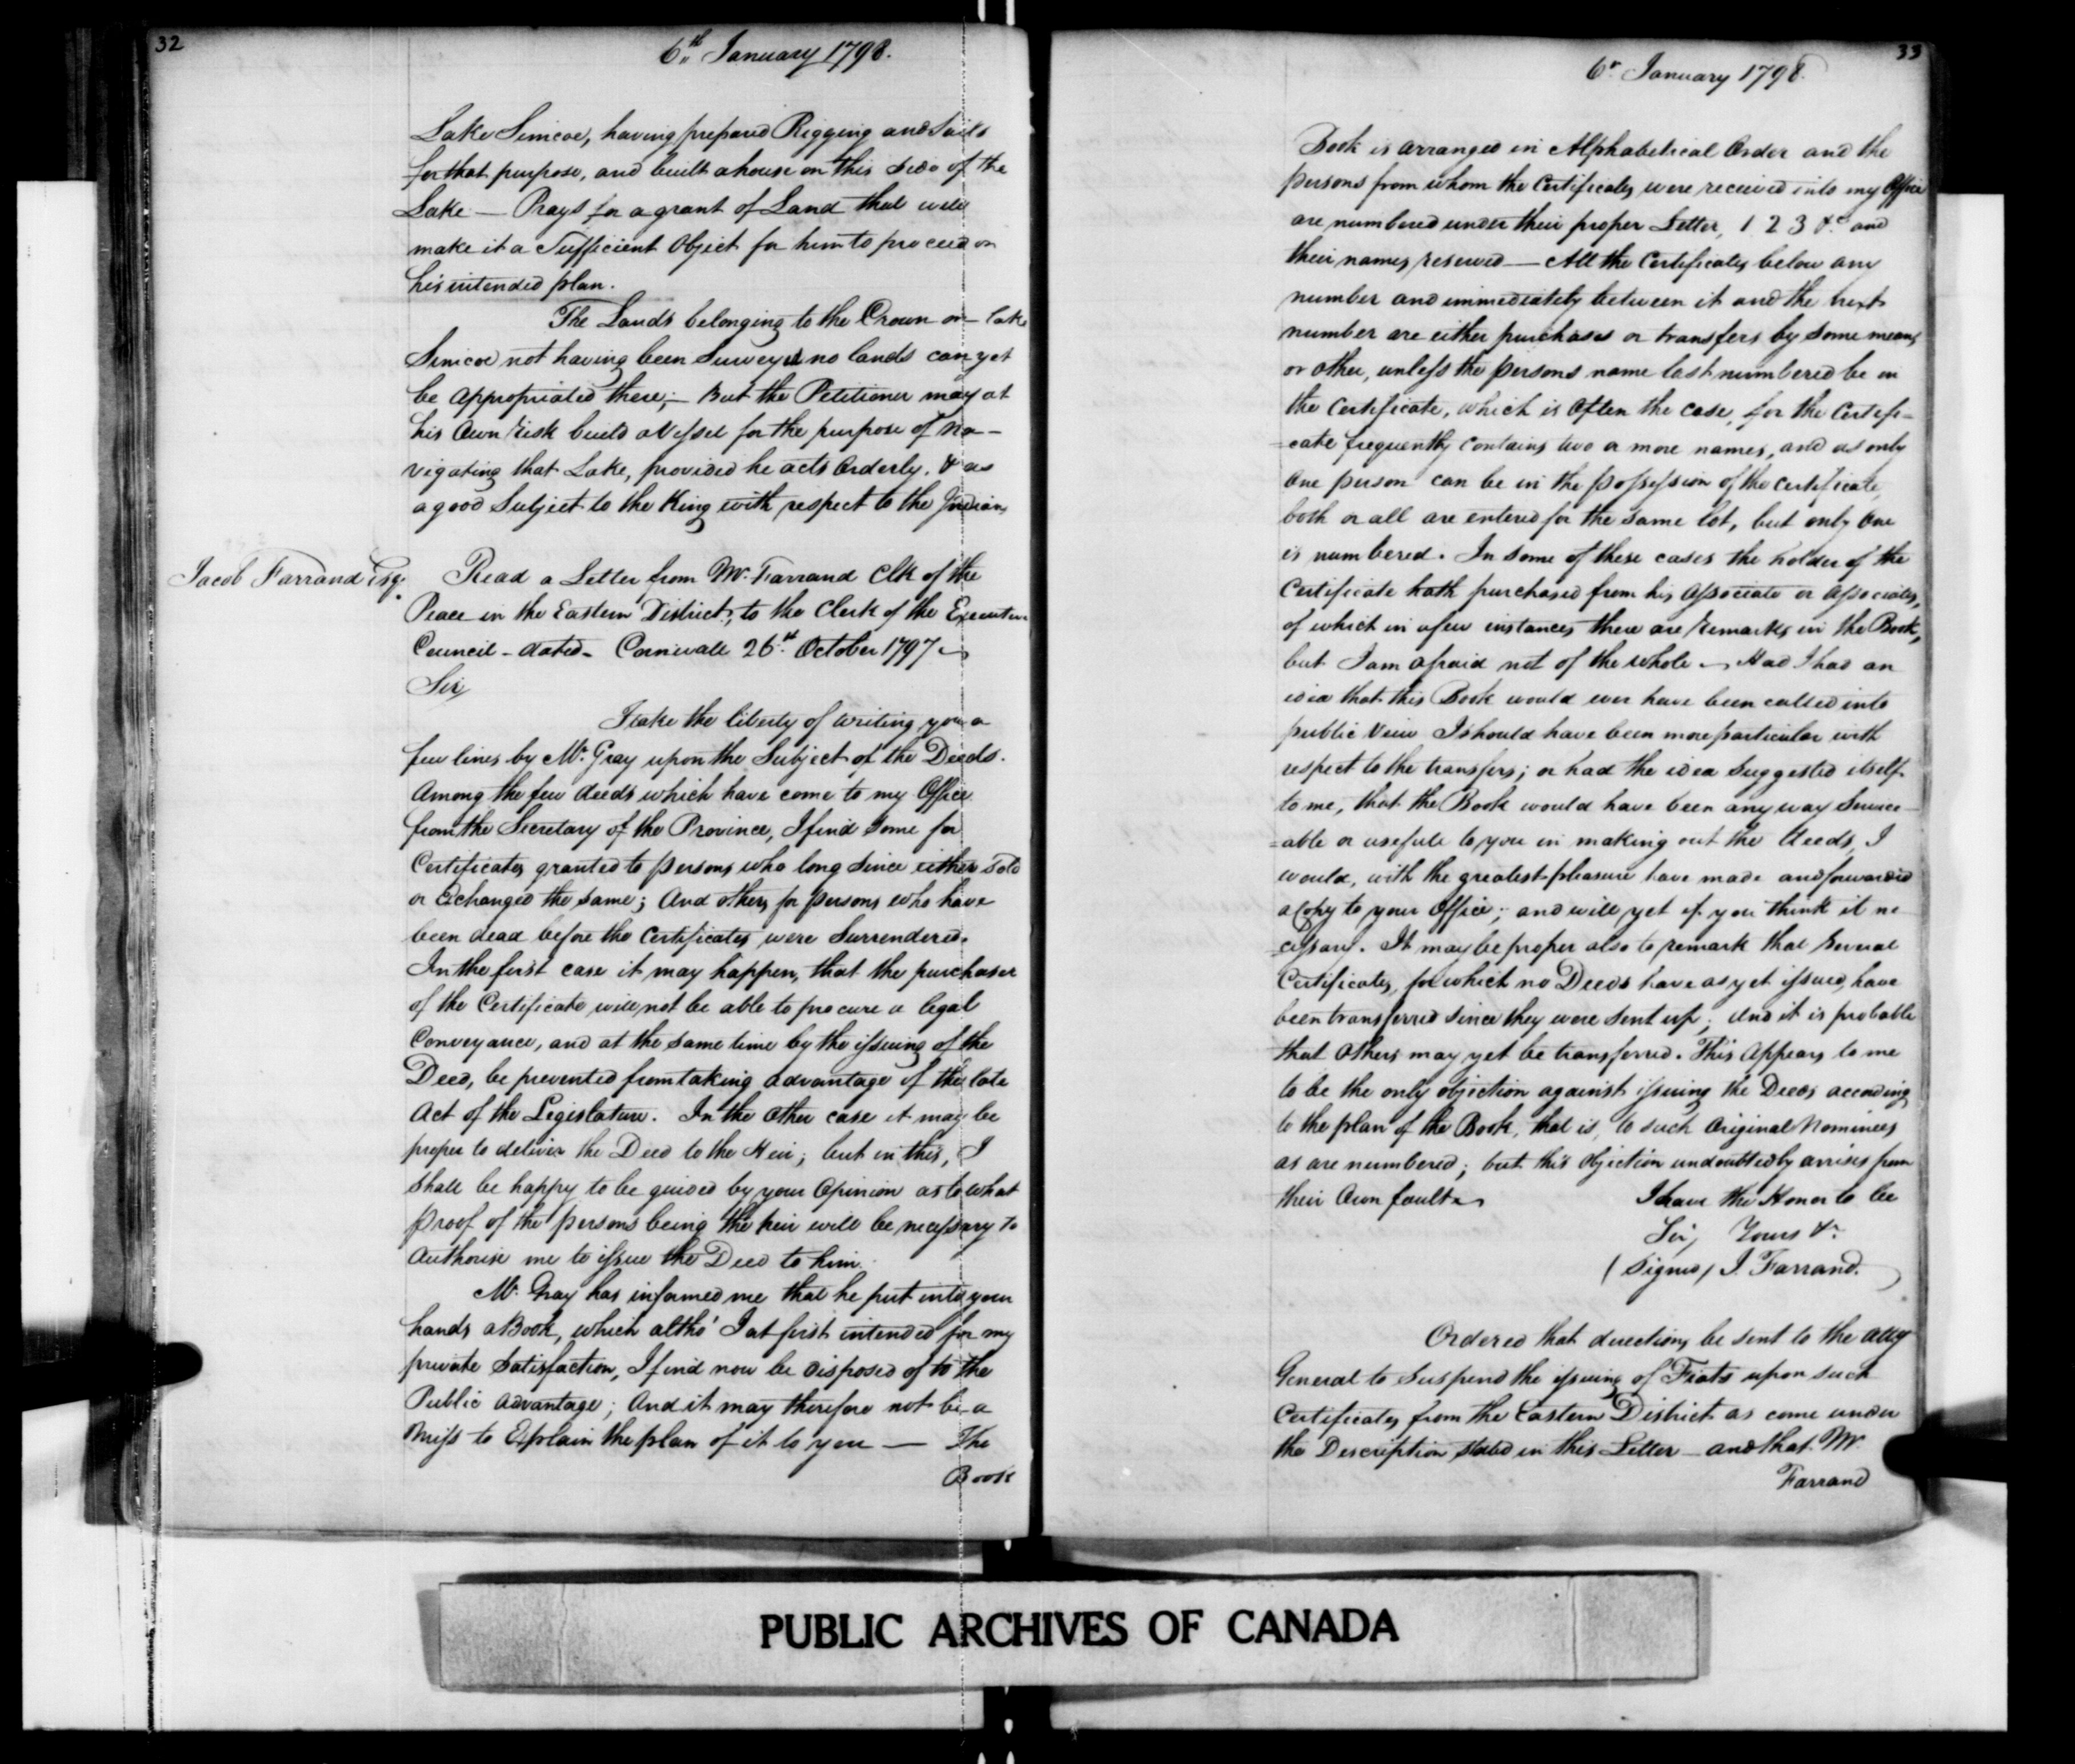 32
6th January 1798.
Lake Simcoe, having prepared Rigging and Sails
for that purpose, and built a house on this side of the
Lake — Prays for a grant of Land that will
make it a Sufficient Object for him to proceed on
his intended plan.
The Lands belonging to the Crown on Lake
Simcoe not having been Surveyed no lands can yet
be appropriated there; — But the Petitioner may at
his Own risk build a Vessel for the purpose of Na-
vigating that Lake, provided he acts Orderly, & as
a good Subject to the King with respect to the Indians
Jacob Farrand Esq.
Read a Letter from Mr. Farrand Clk of the
Peace in the Eastern District, to the Clerk of the Executive
Council - dated - Cornwall 26th October 1797 —
Sir,
I take the liberty of writing you a
few lines by Mr. Gray upon the Subject of the Deeds.
Among the few deeds which have come to my Office
from the Secretary of the Province, I find some for
Certificates granted to persons who long since either sold
or Exchanged the same; And others for persons who have
been dead before the Certificates were Surrendered.
In the first case it may happen, that the purchaser
of the Certificate will not be able to procure a legal
Conveyance, and at the same time by the issuing of the
Deed, be prevented from taking advantage of the late
Act of the Legislature. In the Other case it may be
proper to deliver the Deed to the Heir; but in this, I
shall be happy to be guided by your Opinion as to what
proof of the persons being the heir will be necessary to
Authorise me to issue the Deed to him.
Mr. Gray has informed me that he put into your
hands a Book, which altho' I at first intended for my
private Satisfaction, I find now be disposed of to the
Public advantage; And it may therefore not be a
miss to Explain the plan of it to you — The
Book
33
6th January 1798.
Book is arranged in Alphabetical Order and the
persons from whom the Certificates were received into my Office
are numbered under their proper Letter, 1 2 3 &c. and
their names reserved — All the Certificates below any
number and immediately between it and the next
number are either purchases or transfers by some means
or other, unless the persons name last numbered be in
the Certificate, which is Often the case, for the Certifi-
=cate frequently contains two or more names, and as only
One person can be in the possession of the Certificate,
both or all are entered for the same lot, but only One
is numbered. In some of these cases the holder of the
Certificate hath purchased from his Associate or Associates,
of which in a few instances there are remarks in the Book,
but I am afraid not of the whole — Had I had an
idea that this Book would ever have been called into
public View I should have been more particular with
respect to the transfers; or had the idea Suggested itself
to me, that the Book would have been any way Service-
=able or usefull to you in making out the Deeds, I
would, with the greatest pleasure have made and forwarded
a Copy to your Office; and will yet if you think it ne
=cessary. It may be proper also to remark that several
Certificates, for which no Deeds have as yet issued, have
been transferred since they were sent up; And it is probable
that Others may yet be transferred. This Appears to me
to be the only objection against issuing the Deeds according
to the plan of the Book, that is, to such Original Nominees
as are numbered; but this Objection undoubtedly arrises from
their Own fault —
I have the Honor to be
Sir, Yours &c.
(Signed) J. Farrand.
Ordered that directions be sent to the Atty
General to Suspend the issuing of Fiats upon such
Certificates from the Eastern District as come under
the Description stated in this Letter — and that Mr.
Farrand
PUBLIC ARCHIVES OF CANADA